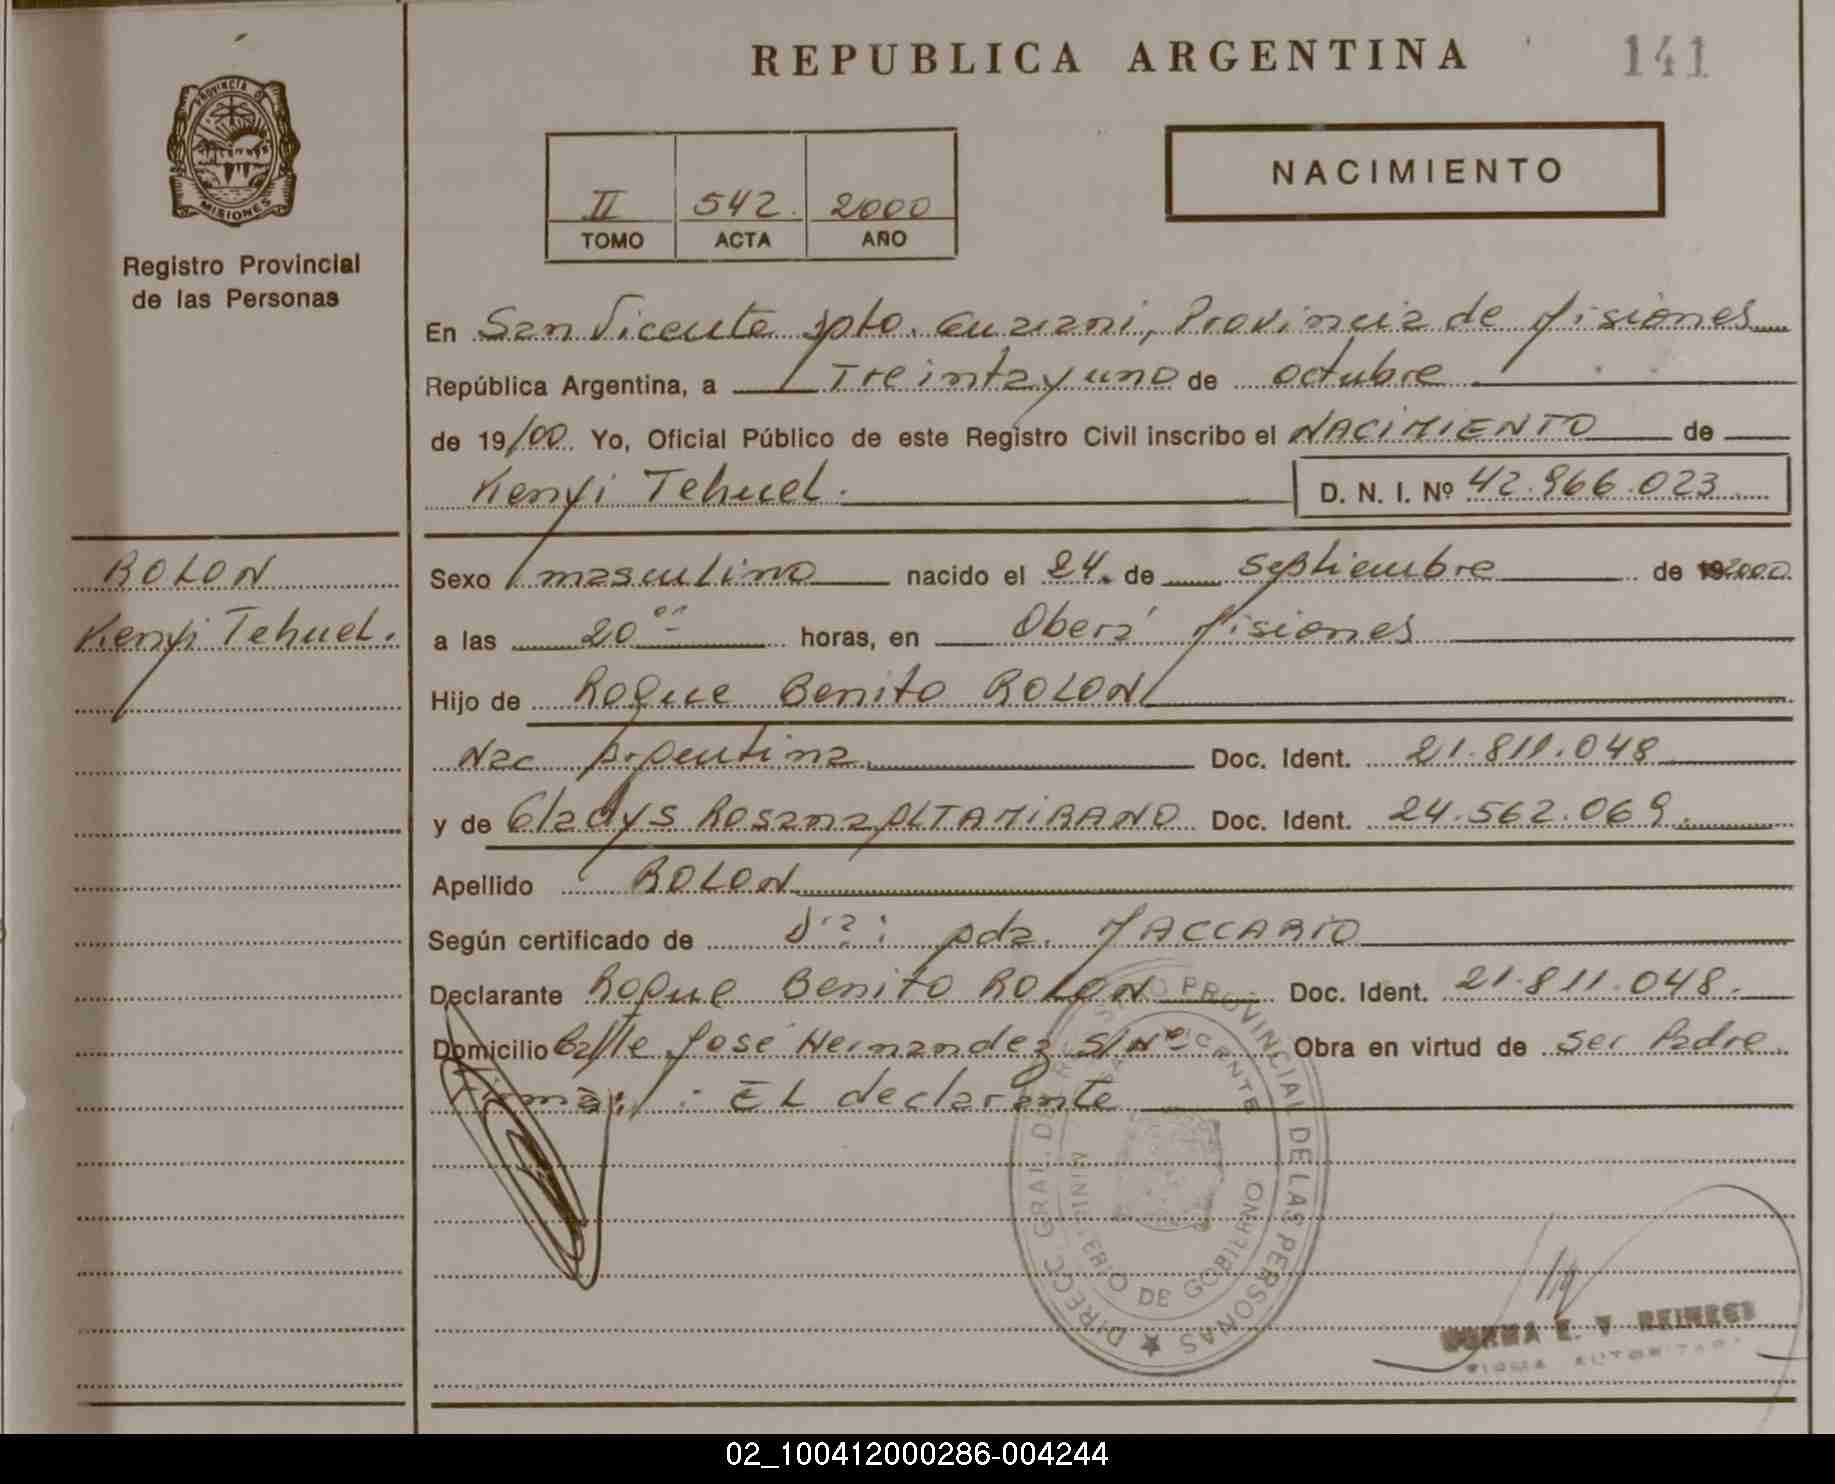 REPUBLICA ARGENTINA
141
PROVINCIA DE
MISIONES
Registro Provincial
de las Personas
II 542. 2000
TOMO ACTA AÑO
NACIMIENTO
En San Vicente Dpto. Guarani, Provincia de Misiones
República Argentina, a Treinta y uno de octubre
de 19/00. Yo, Oficial Público de este Registro Civil inscribo el NACIMIENTO de
Kenyi Tehuel. D. N. I. Nº 42.966.023
ROLON
Kenyi Tehuel.
Sexo masculino nacido el 24. de septiembre de 2000.
a las 20 horas, en Oberá Misiones
Hijo de Roque Benito ROLON
Nac Argentina. Doc. Ident. 21.811.048
y de Gladys Rosana ALTAMIRANO Doc. Ident. 24.562.069.
Apellido ROLON
Según certificado de MACCARIO
Declarante Roque Benito ROLON Doc. Ident. 21.811.048.
Domicilio Calle José Hernandez S/Nº Obra en virtud de Ser Padre.
Firma: EL declarante
DIRECC. GRAL. DEL REGISTRO PROVINCIAL DE LAS PERSONAS
SAN VICENTE
MINISTERIO DE GOBIERNO
NORMA E. V
FIRMA AUTORIZADA
02_100412000286-004244